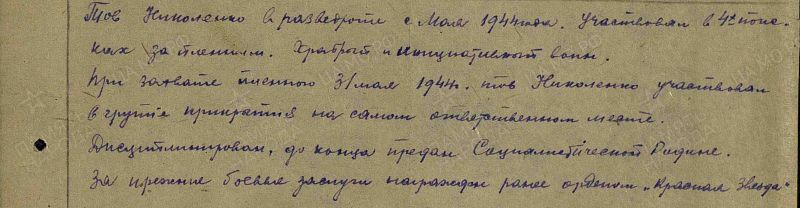 Тов Николенко в разведроте с Мая 1944 года. Участвовал в 4х поис-
ках за пленным. Храбрый и инициативный воин.
При захвате пленного 31 мая 1944г. тов Николенко участвовал
в группе прикрытия на самом ответственном месте.
Дисциплинирован, до конца предан Социалистической Родине.
За прежние боевые заслуги награжден ранее орденом "Красная Звезда"